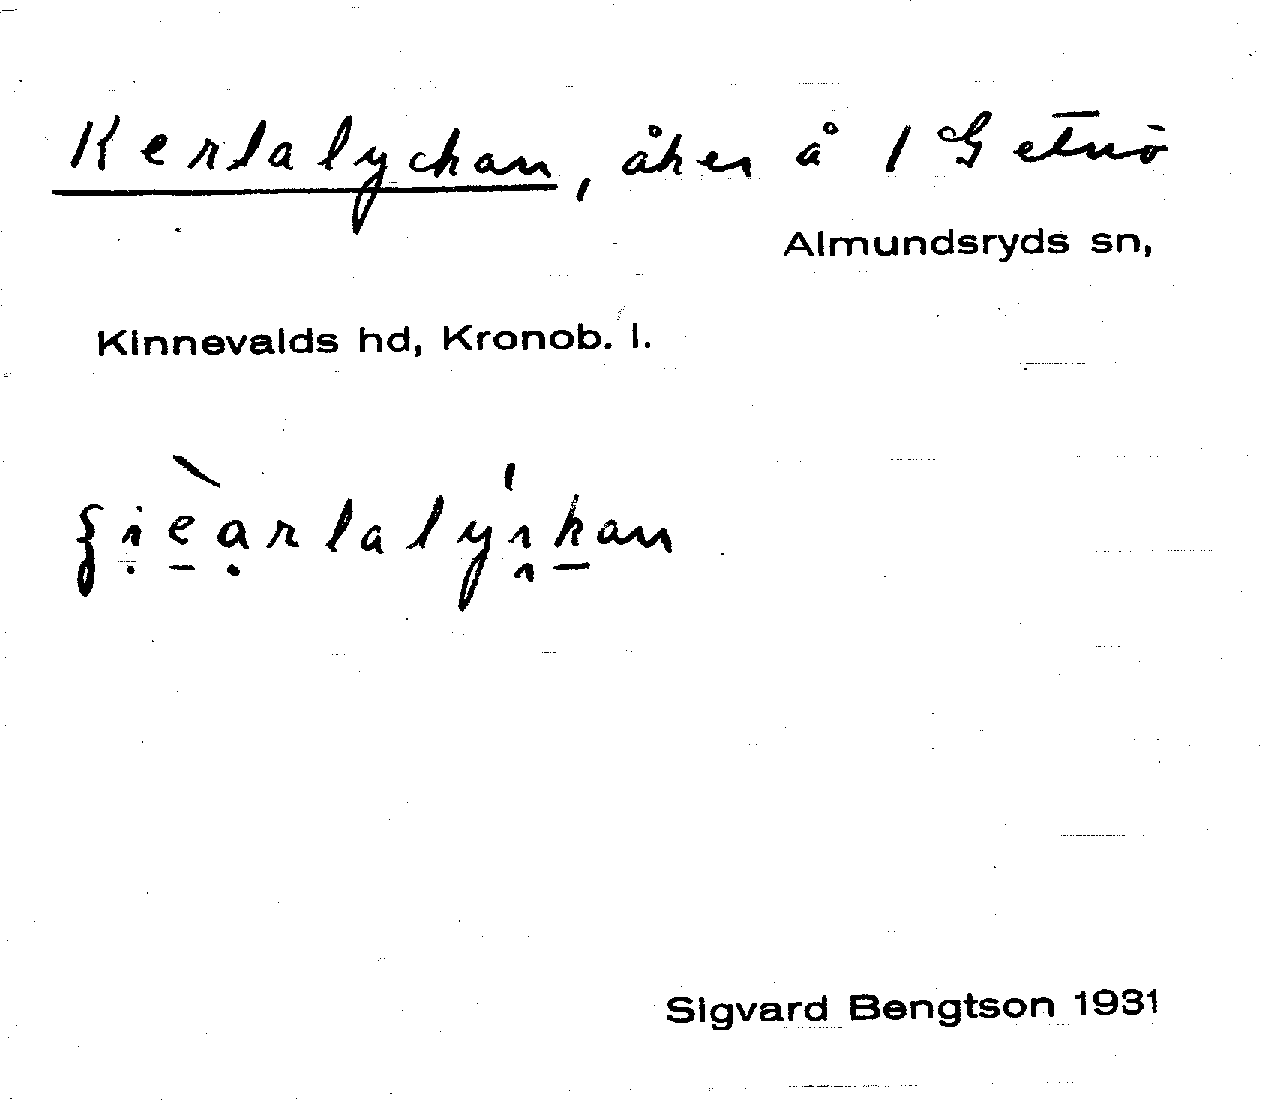 Kerlalyckan, åker å 1 Getnö
Almundsryds sn,
Kinnevalds hd, Kronob. l.
Sigvard Bengtson 1931